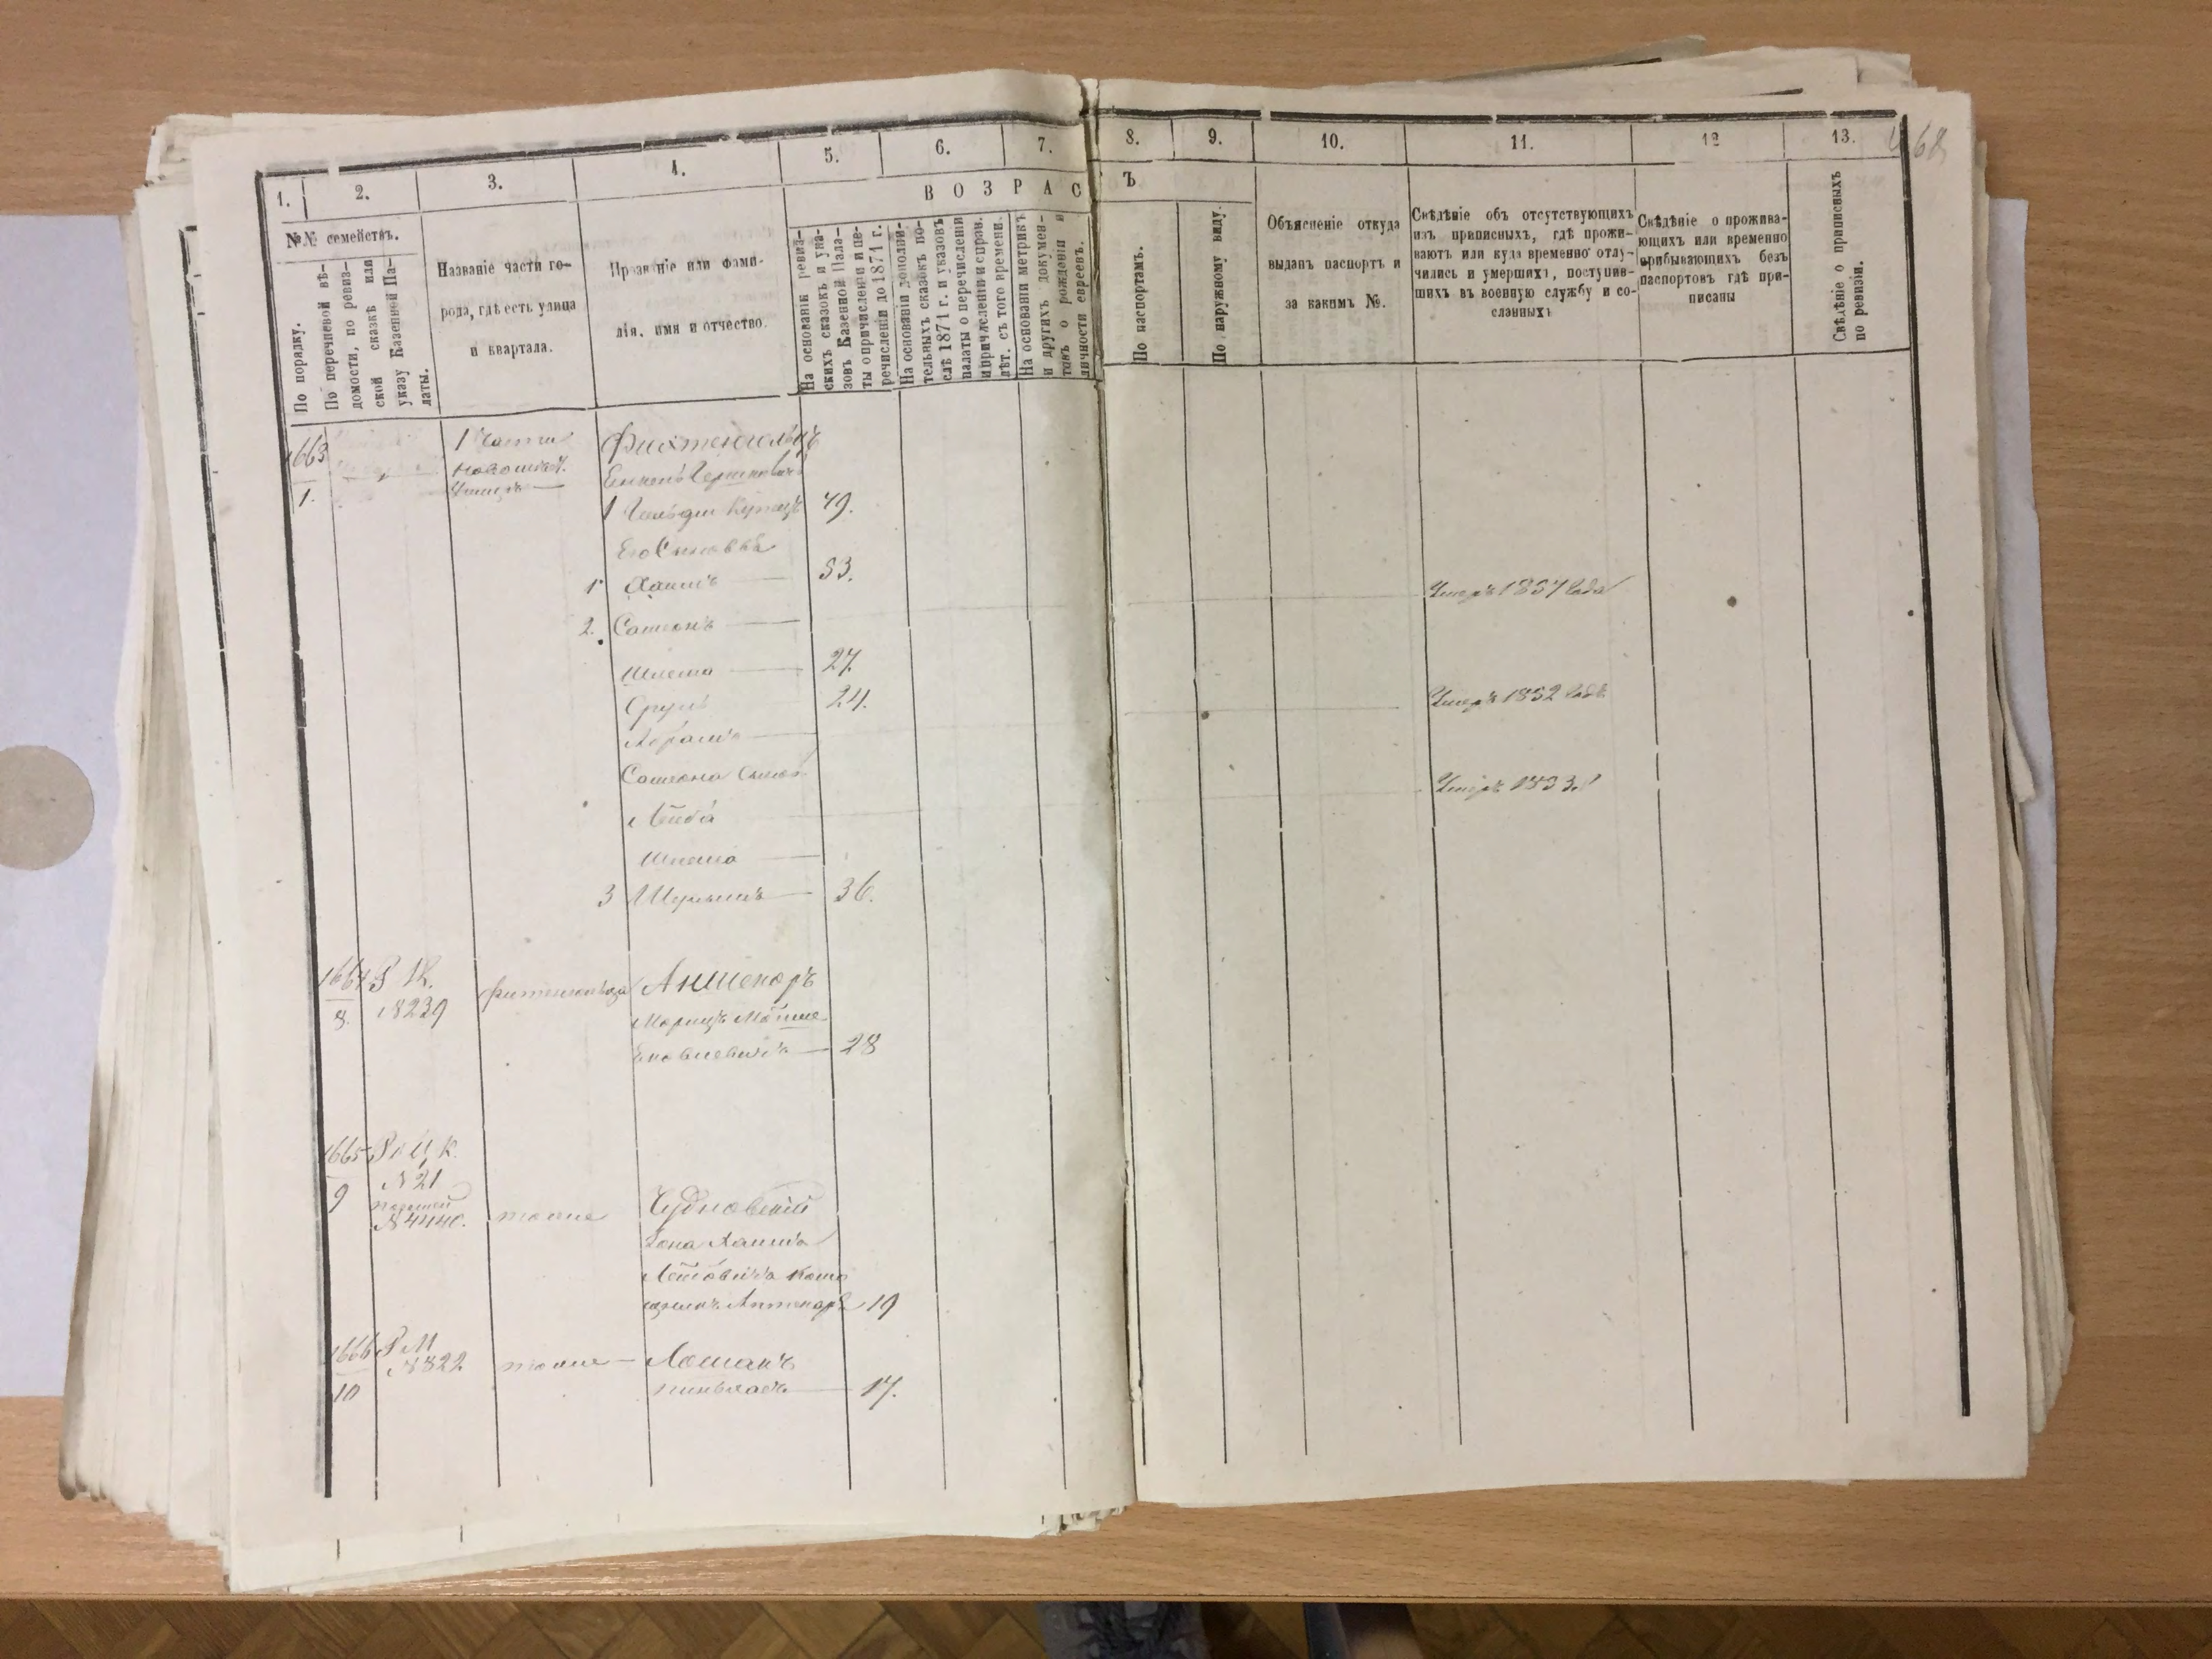 1.
2.
3.
4.
5.
6.
7.
8.
9.
10.
11.
12
13.
68
ВОЗРАС
Ъ
№№ семействъ.
По порядку.
По перечневой вѣ-
домости, по ревиз-
ской сказкѣ или
указу Казенной Па-
латы.
Названіе части го-
рода, гдѣ есть улица
и квартала.
Прозваніе или фами-
лія, имя и отчество.
На основаніи ревиз-
скихъ сказокъ и ука-
зовъ Казенной Пала-
ты о причисленіи и пе-
речисленіи до 1871 г.
На основаніи дополни-
тельныхъ сказокъ по-
слѣ 1871 г. и указовъ
палаты о перечисленіи
и причисленіи и справ.
лѣт. съ того времени.
На основаніи метрикъ
и другихъ докумен-
товъ о рожденіи и
личности евреевъ.
По паспортамъ.
По наружному виду.
Объясненіе откуда
выданъ паспортъ и
за какимъ №.
Свѣдѣніе объ отсутствующихъ
изъ приписныхъ, гдѣ прожи-
ваютъ или куда временно отлу-
чились и умершихъ, поступив-
шихъ въ военную службу и со-
сланныхъ
Свѣдѣніе о прожива-
ющихъ или временно
прибывающихъ безъ
паспортовъ гдѣ при-
писаны
Свѣдѣніе о приписныхъ
по ревизіи.
1663
1.
1 Части
Фихтенгольцъ
49.
Его Сыновья
1 Хаимъ 53.
Умеръ 1857 Года
2. Самсонъ
Шлема 27.
Срулъ 24.
Умеръ 1852 Года
Абрамъ
Самсона Сынов
Лейба
Умеръ 1853
Шлема
3 36.
1664
8.
№239
Аншепоръ
Морицъ Мойше
28
1665
9
№21
№4440.
тоже
Чудновскій
Іона Хаимъ
Лейбовичъ
19
1666
10
№822
тоже
Лошакъ
17.